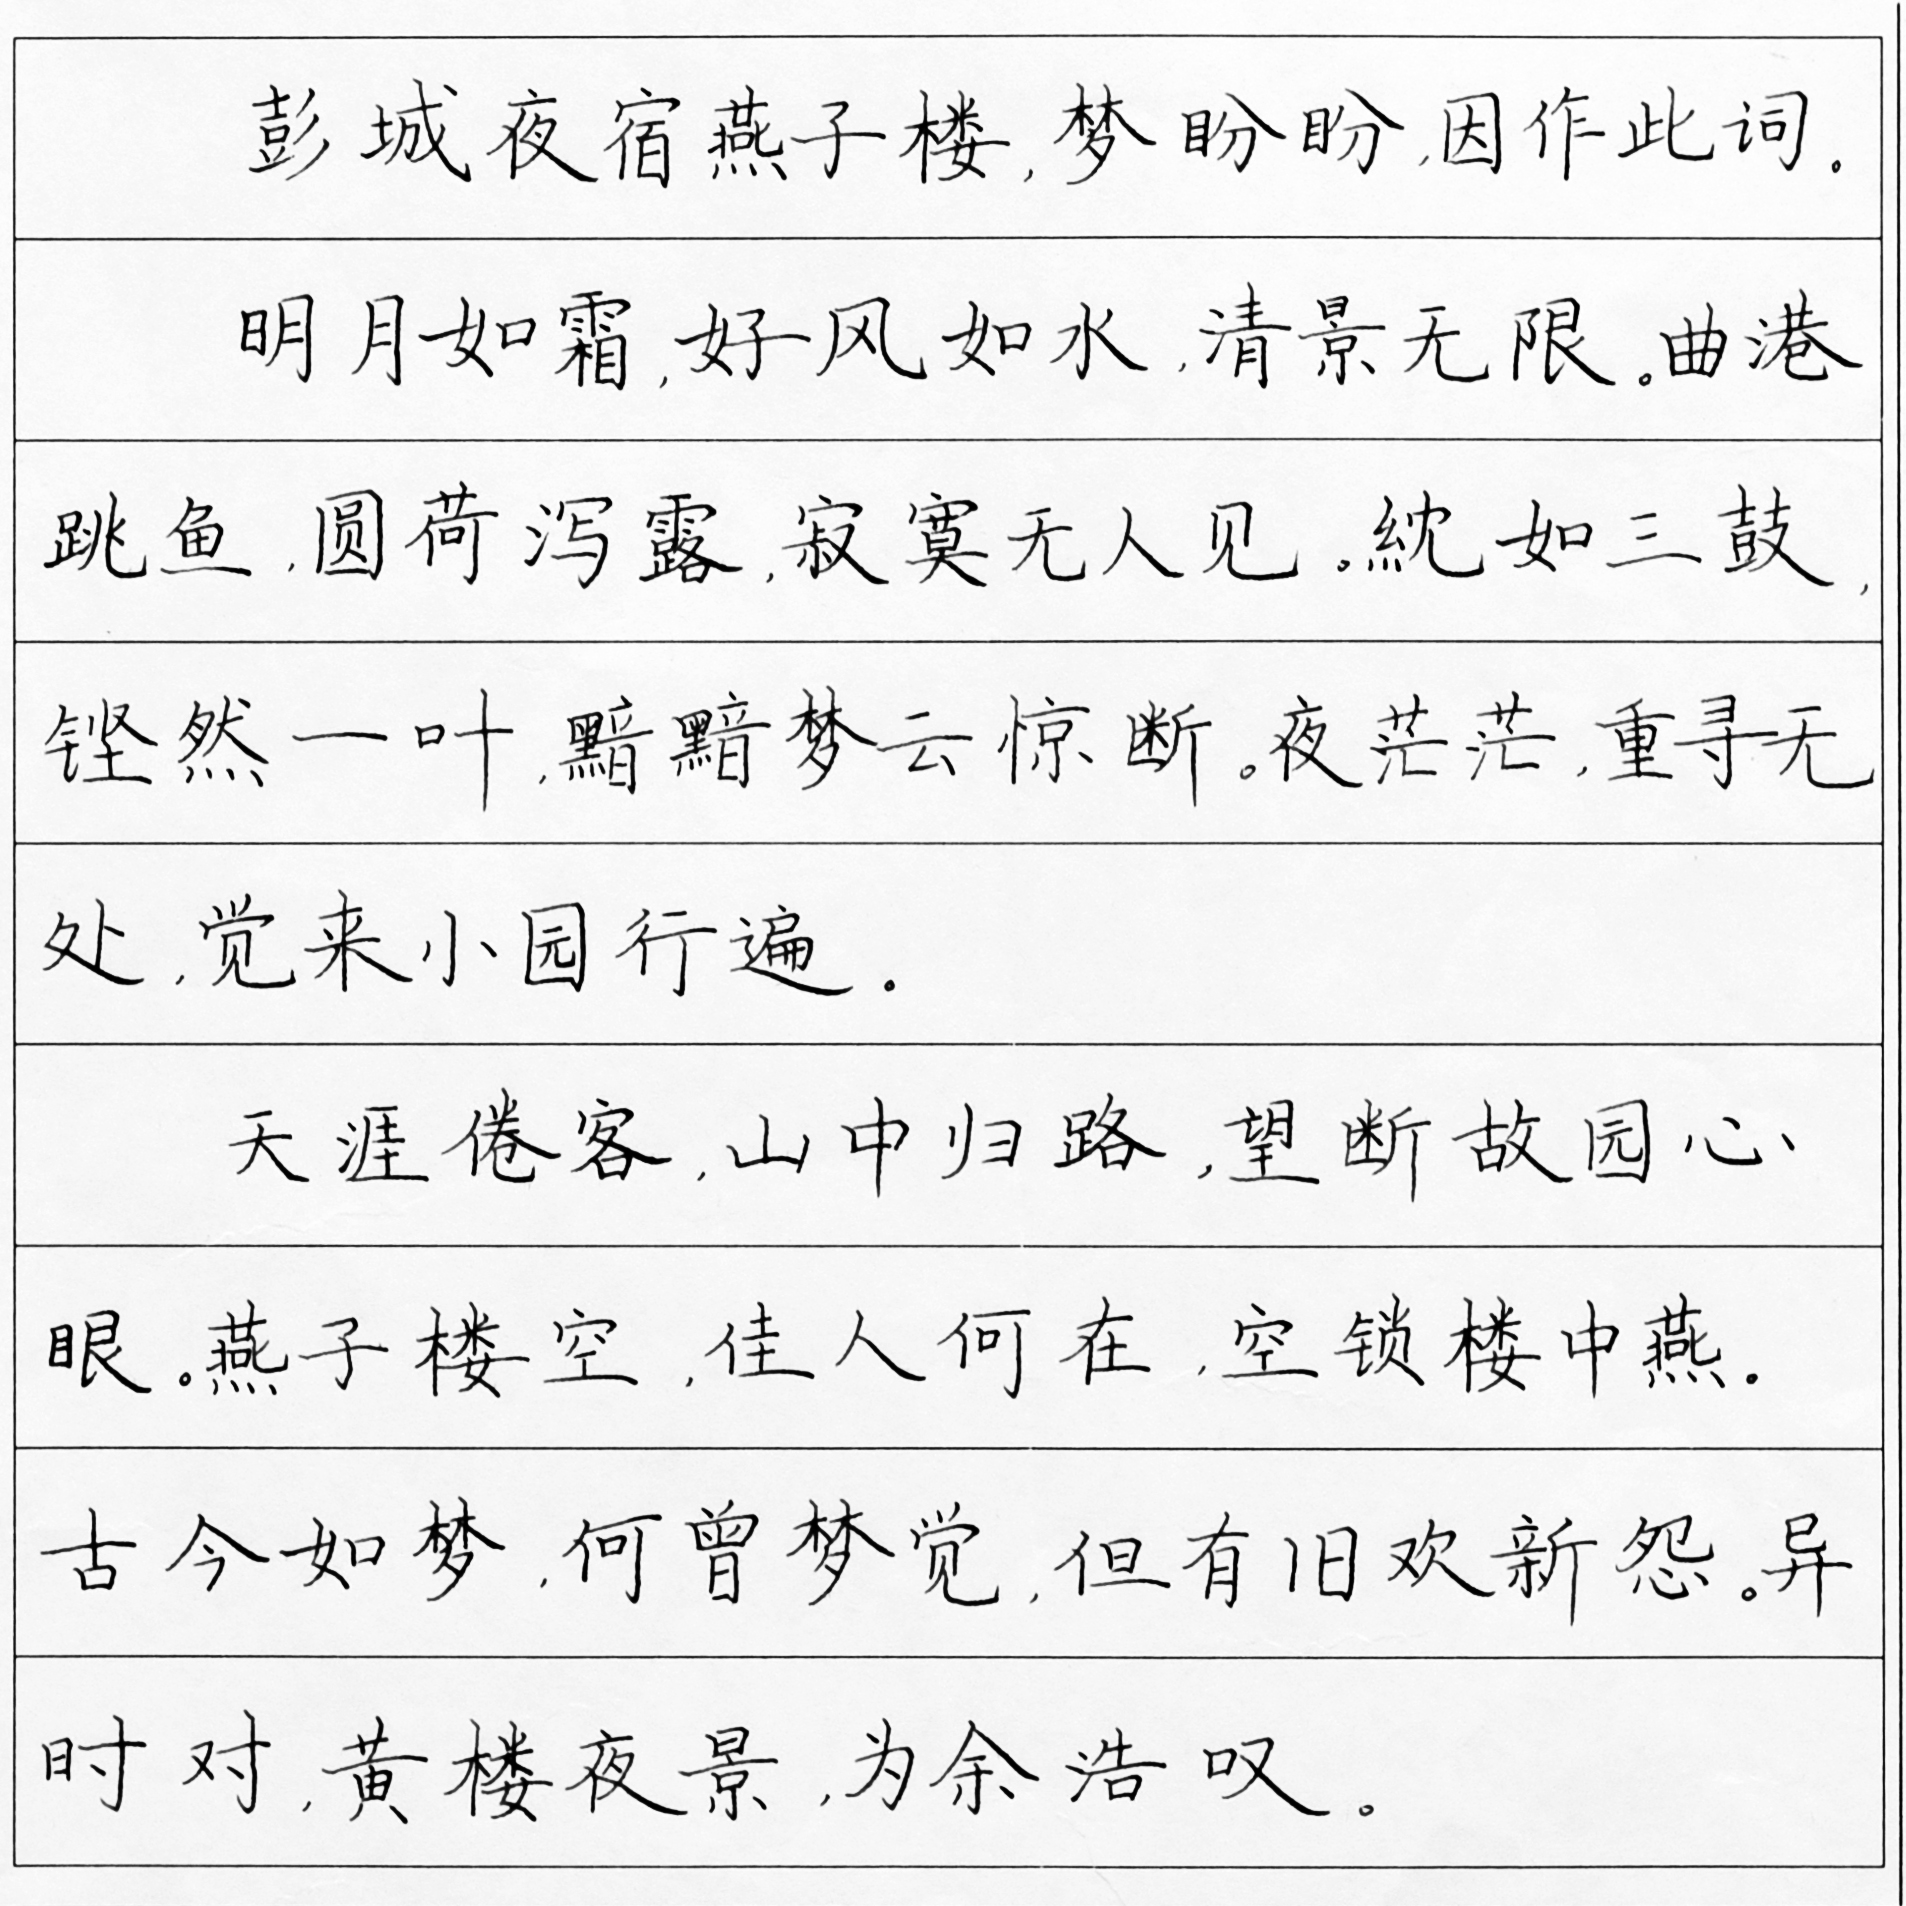 彭城夜宿燕子楼，梦盼盼，因作此词。
明月如霜，好风如水，清景无限。曲港
跳鱼，圆荷泻露，寂寞无人见。紞如三鼓，
铿然一叶，黯黯梦云惊断。夜茫茫，重寻无
处，觉来小园行遍。
天涯倦客，山中归路，望断故园心
眼。燕子楼空，佳人何在，空锁楼中燕。
古今如梦，何曾梦觉，但有旧欢新怨。异
时对，黄楼夜景，为余浩叹。